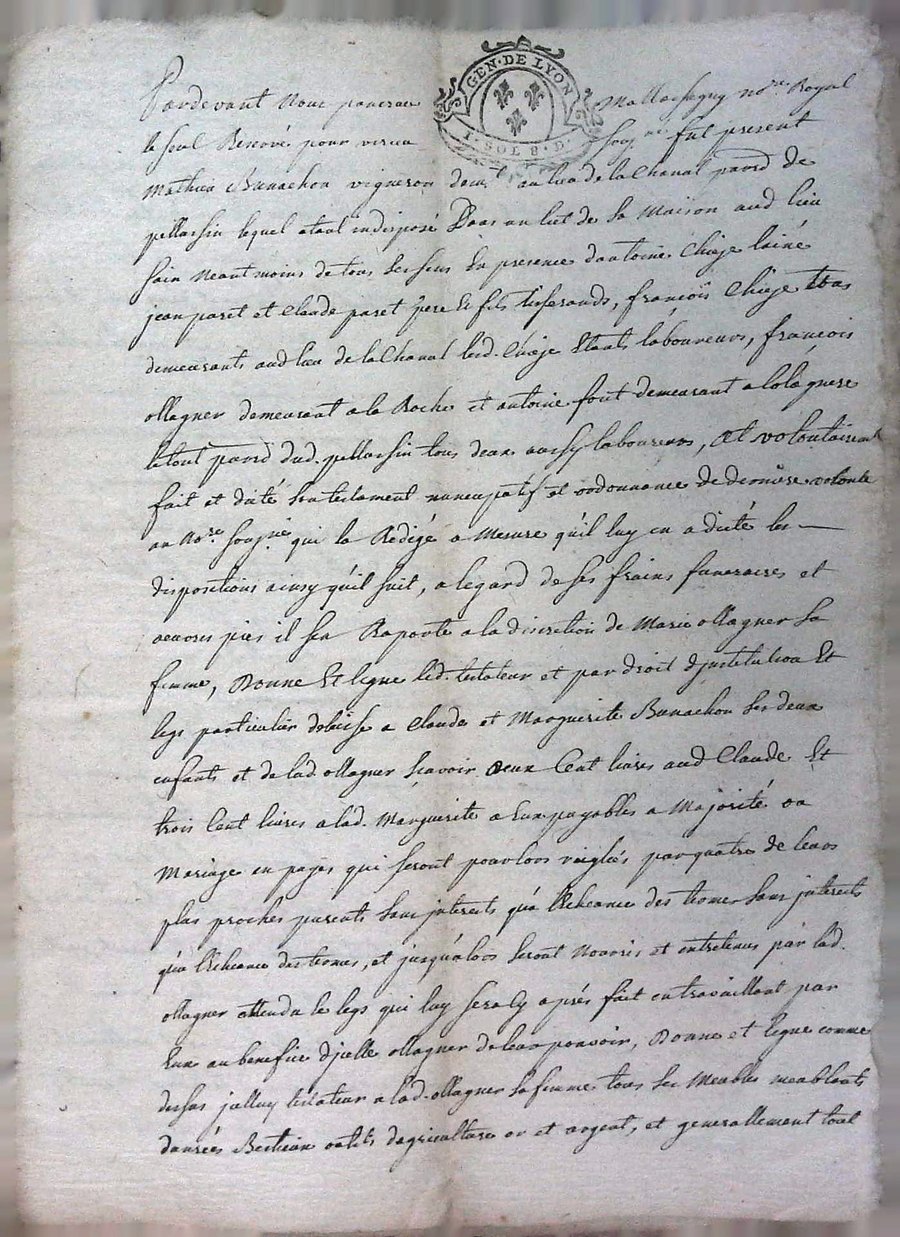 GEN · DE LYON
1 · SOL 8 · D ·
Pardevant Nous Mallassagny no.re Royal
le seul Reservé pour soug.né fut present
Mathieu Bunachon vigneron dem.t au lieu de la Chanal paroid de
pellassin lequel etant indisposé Dans un lict de sa Maison aud lieu
sain Neantmoins de tous ses sens En presence dantoine Chieje lainé
jean paret et Claude paret pere Et fils tisserands, francois Chieje
demeurants aud lieu de la Chanal led. Chieje Etants laboureurs, francois
ollagner demeurant a la Roche et antoine font demeurant a
le tout paroid dud. pellassin tous deux aussy laboureurs, at volontairement
fait et dicté son testament nuncupatif et ordonnance de derniere volonté
au No.re soug.né qui la Redigé a Mesure qu'il luy en a dicté les
dispositions ainsy qu'il suit, a legard de ses frains funeraires et
oeuvres pies il sen Raporte a la discretion de Marie ollagner sa
femme, Donne Et legue led. testateur et par droit djnstitution Et
legs particulier delaisse a Claude et Marguerite Bunachon ses deux
enfants et de lad. ollagner scavoir deux Cent livres aud Claude Et
trois Cent livres a lad. Marguerite a Eux payables a Majorité ou
Mariage en payes qui seront pour lors reiglés par quatre de leurs
plus proches parents sans jnterests qu'a lecheance des termes sans jnterests
qu'a lecheance des termes, et jusqu'alors seront Nouris et entretenus par lad.
ollagner attendu le legs qui luy sera Cy aprés fait en travaillant par
Eux au benefice djcelle ollagner de leur pouvoir, Donne et legue comme
dessus jcelluy testateur a lad. ollagner sa femme tous ses Meubles meublants
danrées Bestiaux outils dagriculture or et argent, et generallement tout